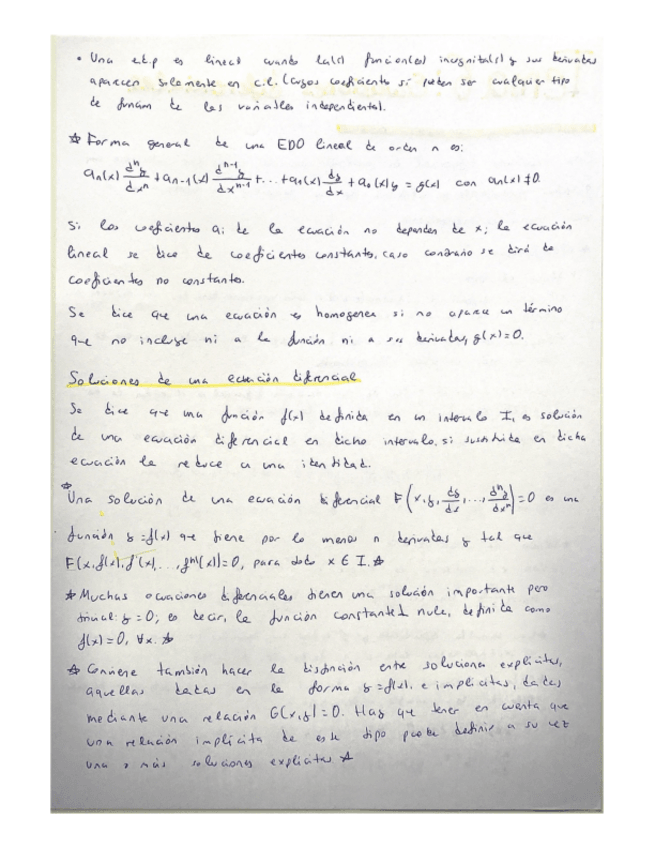 • Una e.d.p es lineal cuando la(s) función(es) incognita(s) y sus derivadas
aparecen solamente en c.l. (cuyos coeficiente si pueden ser cualquier tipo
de función de las variables independiente).
☆ Forma general de una EDO lineal de orden n es:
aₙ(x) dⁿy/dxⁿ + aₙ₋₁(x) dⁿ⁻¹y/dxⁿ⁻¹ + ... + a₁(x) dy/dx + a₀(x)y = g(x) con aₙ(x) ≠ 0.
Si los coeficientes aᵢ de la ecuación no dependen de x; la ecuación
lineal se dice de coeficientes constantes, caso contrario se dirá de
coeficientes no constantes.
Se dice que una ecuación es homogenea si no aparece un término
que no incluye ni a la función ni a sus derivadas, g(x)=0.
Soluciones de una ecuación diferencial
Se dice que una función f(x) definida en un intervalo I, es solución
de una ecuación diferencial en dicho intervalo, si sustituida en dicha
ecuación la reduce a una identidad.
☆ Una solución de una ecuación diferencial F(x, y, dy/dx, ..., dⁿy/dxⁿ) = 0 es una
función y = f(x) que tiene por lo menos n derivadas y tal que
F(x, f(x), f'(x), ..., fⁿ(x)) = 0, para todo x ∈ I. ☆
☆ Muchas ecuaciones diferenciales tienen una solución importante pero
trivial: y = 0; es decir, la función constante nula, definida como
f(x) = 0, ∀x. ☆
☆ Conviene también hacer la distinción entre soluciones explicitas,
aquellas dadas en la forma y = f(x), e implicitas, dadas
mediante una relación G(x,y) = 0. Hay que tener en cuenta que
una relación implícita de este tipo puede definir a su vez
una o más soluciones explicitas ☆